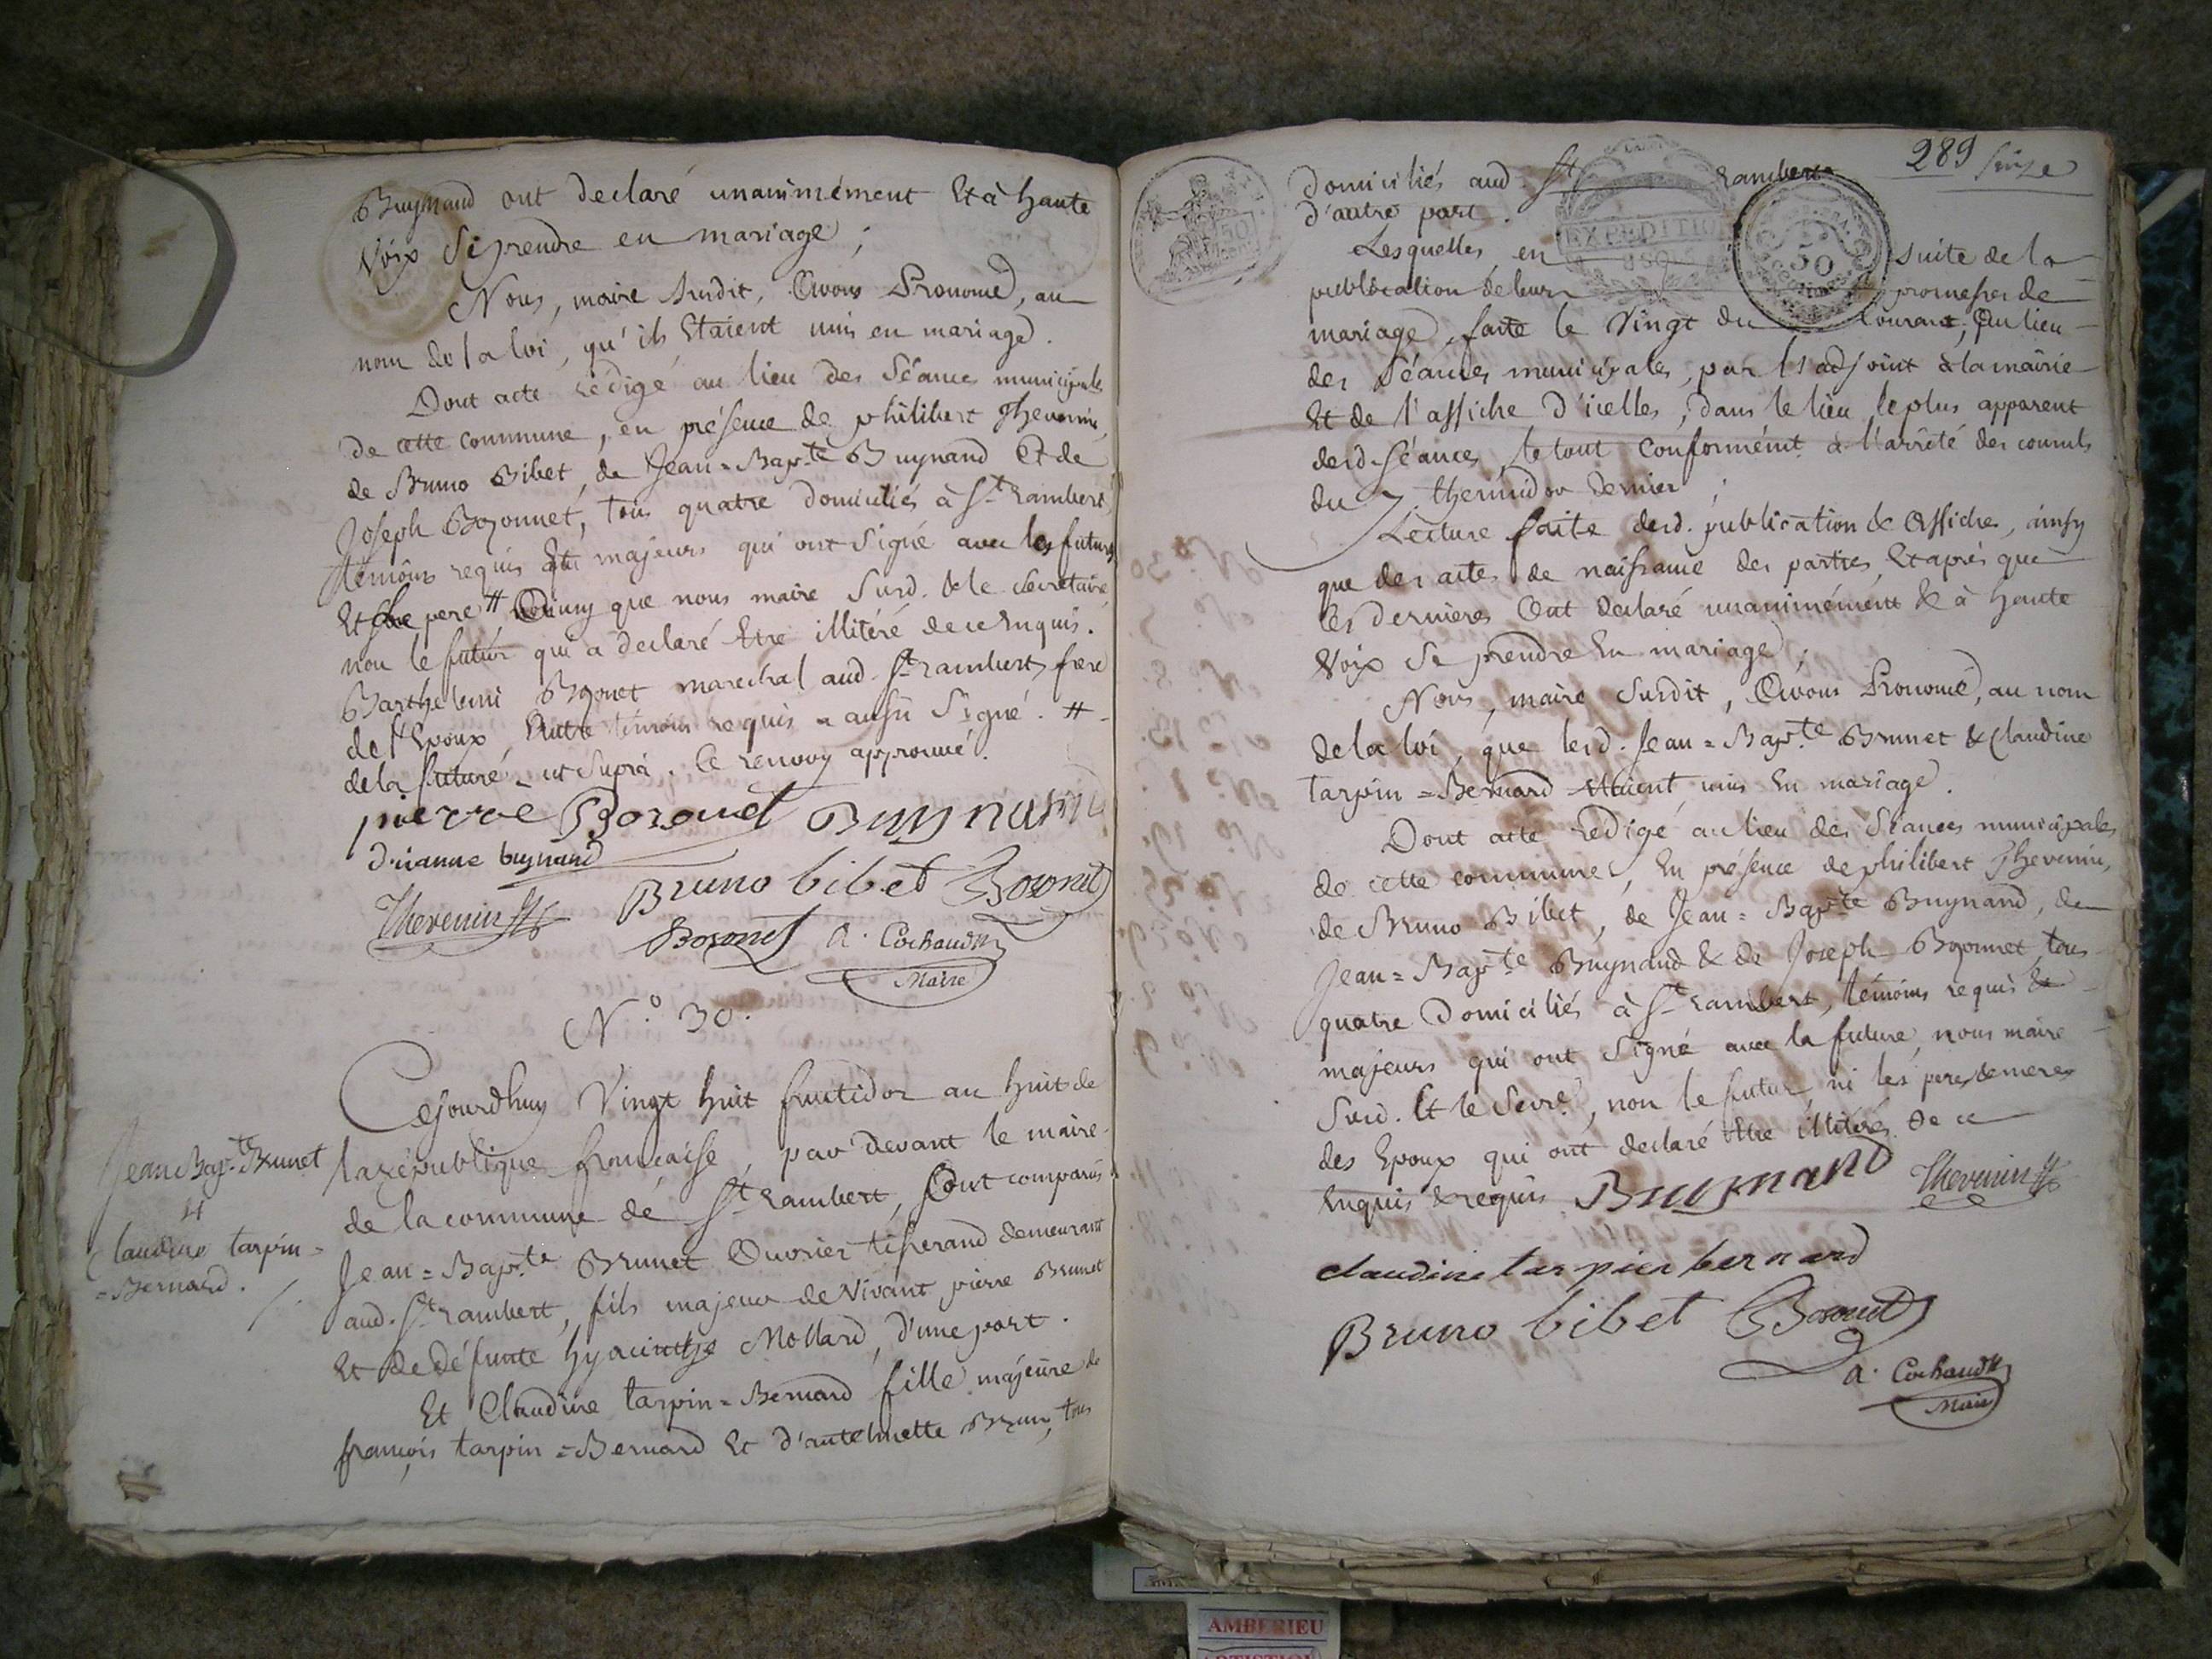 Buynand ont declaré unanimément Et à haute
Voix se prendre en mariage ;
Nous, maire susdit, Avons Pronomé, au
nom de la loi, qu'ils Etaient unis en mariage.
Dont acte rédigé au lieu des Séances municipales
de cette commune, en présence de philibert Thevenin,
de Bruno Bibet, de Jean=Bap.te Buynand Et de
Joseph Bozonnet, tous quatre domiciliés à St Rambert
témoins requis Et majeurs qui ont Signé avec les futurs
Et le pere # Ainsy que nous maire Susd. & le Secretaire
non le futur qui a declaré Etre illitéré de ce Enquis.
Barthelemi Bozonet marechal aud. St rambert, frere
de l'Epoux, Autre témoin requis a aussi Signé. #
de la future ut supra. Le renvoy approuvé.
pierre Bozonet Buynand
drianne buynand
Thevenin
Bruno bibet Bozonet
Bozonet A. Cochaud
Maire
N.o 30.
Cejourdhuy Vingt huit fructidor an huit de
Jean Bap.te Brunet
la république française, par devant le maire
Et
de la commune de St Rambert, Sont comparus
Claudine tarpin=
Jean=Bap.te Brunet Ouvrier tisserand demeurant
=Bernard.
aud. St rambert, fils majeur de Vivant pierre Brunet
Et de défunte hyacinthe Mollard, d'une part.
Et Claudine tarpin=Bernard fille majeure de
françois tarpin=Bernard Et d'antelmette Brun, tous
289 seize
domiciliés aud. St Rambert
d'autre part.
EXPEDITION
50
50
Lesquelles en suite de la
publication de leurs promesses de
mariage, faite le Vingt du Courant, Au lieu
des Séances municipales, par l'adjoint à la mairie
Et de l'affiche d'icelles, dans le lieu le plus apparent
desd. séances, le tout Conformémt. à l'arrêté des consuls
du 7. thermidor dernier ;
Lecture faite desd. publication & Affiches, insy
que des actes de naissance des parties, Et après que
les dernières Ont declaré unanimément & à haute
Voix Se prendre En mariage ;
Nous, maire Susdit, Avons Pronomé, au nom
de la loi, que lesd. Jean=Bap.te Brunet & Claudine
tarpin=Bernard Etaient unis En mariage.
Dont acte rédigé au lieu des Séances municipales
de cette commune, En présence de philibert Thevenin,
de Bruno Bibet, de Jean=Bap.te Buynand, de
Jean=Bap.te Buynand & de Joseph Bozonnet, tous
quatre Domiciliés à St rambert, témoins requis &
majeurs qui ont Signé avec la future, nous maire
Susd. Et le Secre., non le futur, ni les peres & meres
des Epoux qui ont declaré Etre illitérés de ce
Enquis & requis. Buynand Thevenin
claudine tarpien bernard
Bruno bibet Bozonet
A. Cochaud
Maire
AMBERIEU